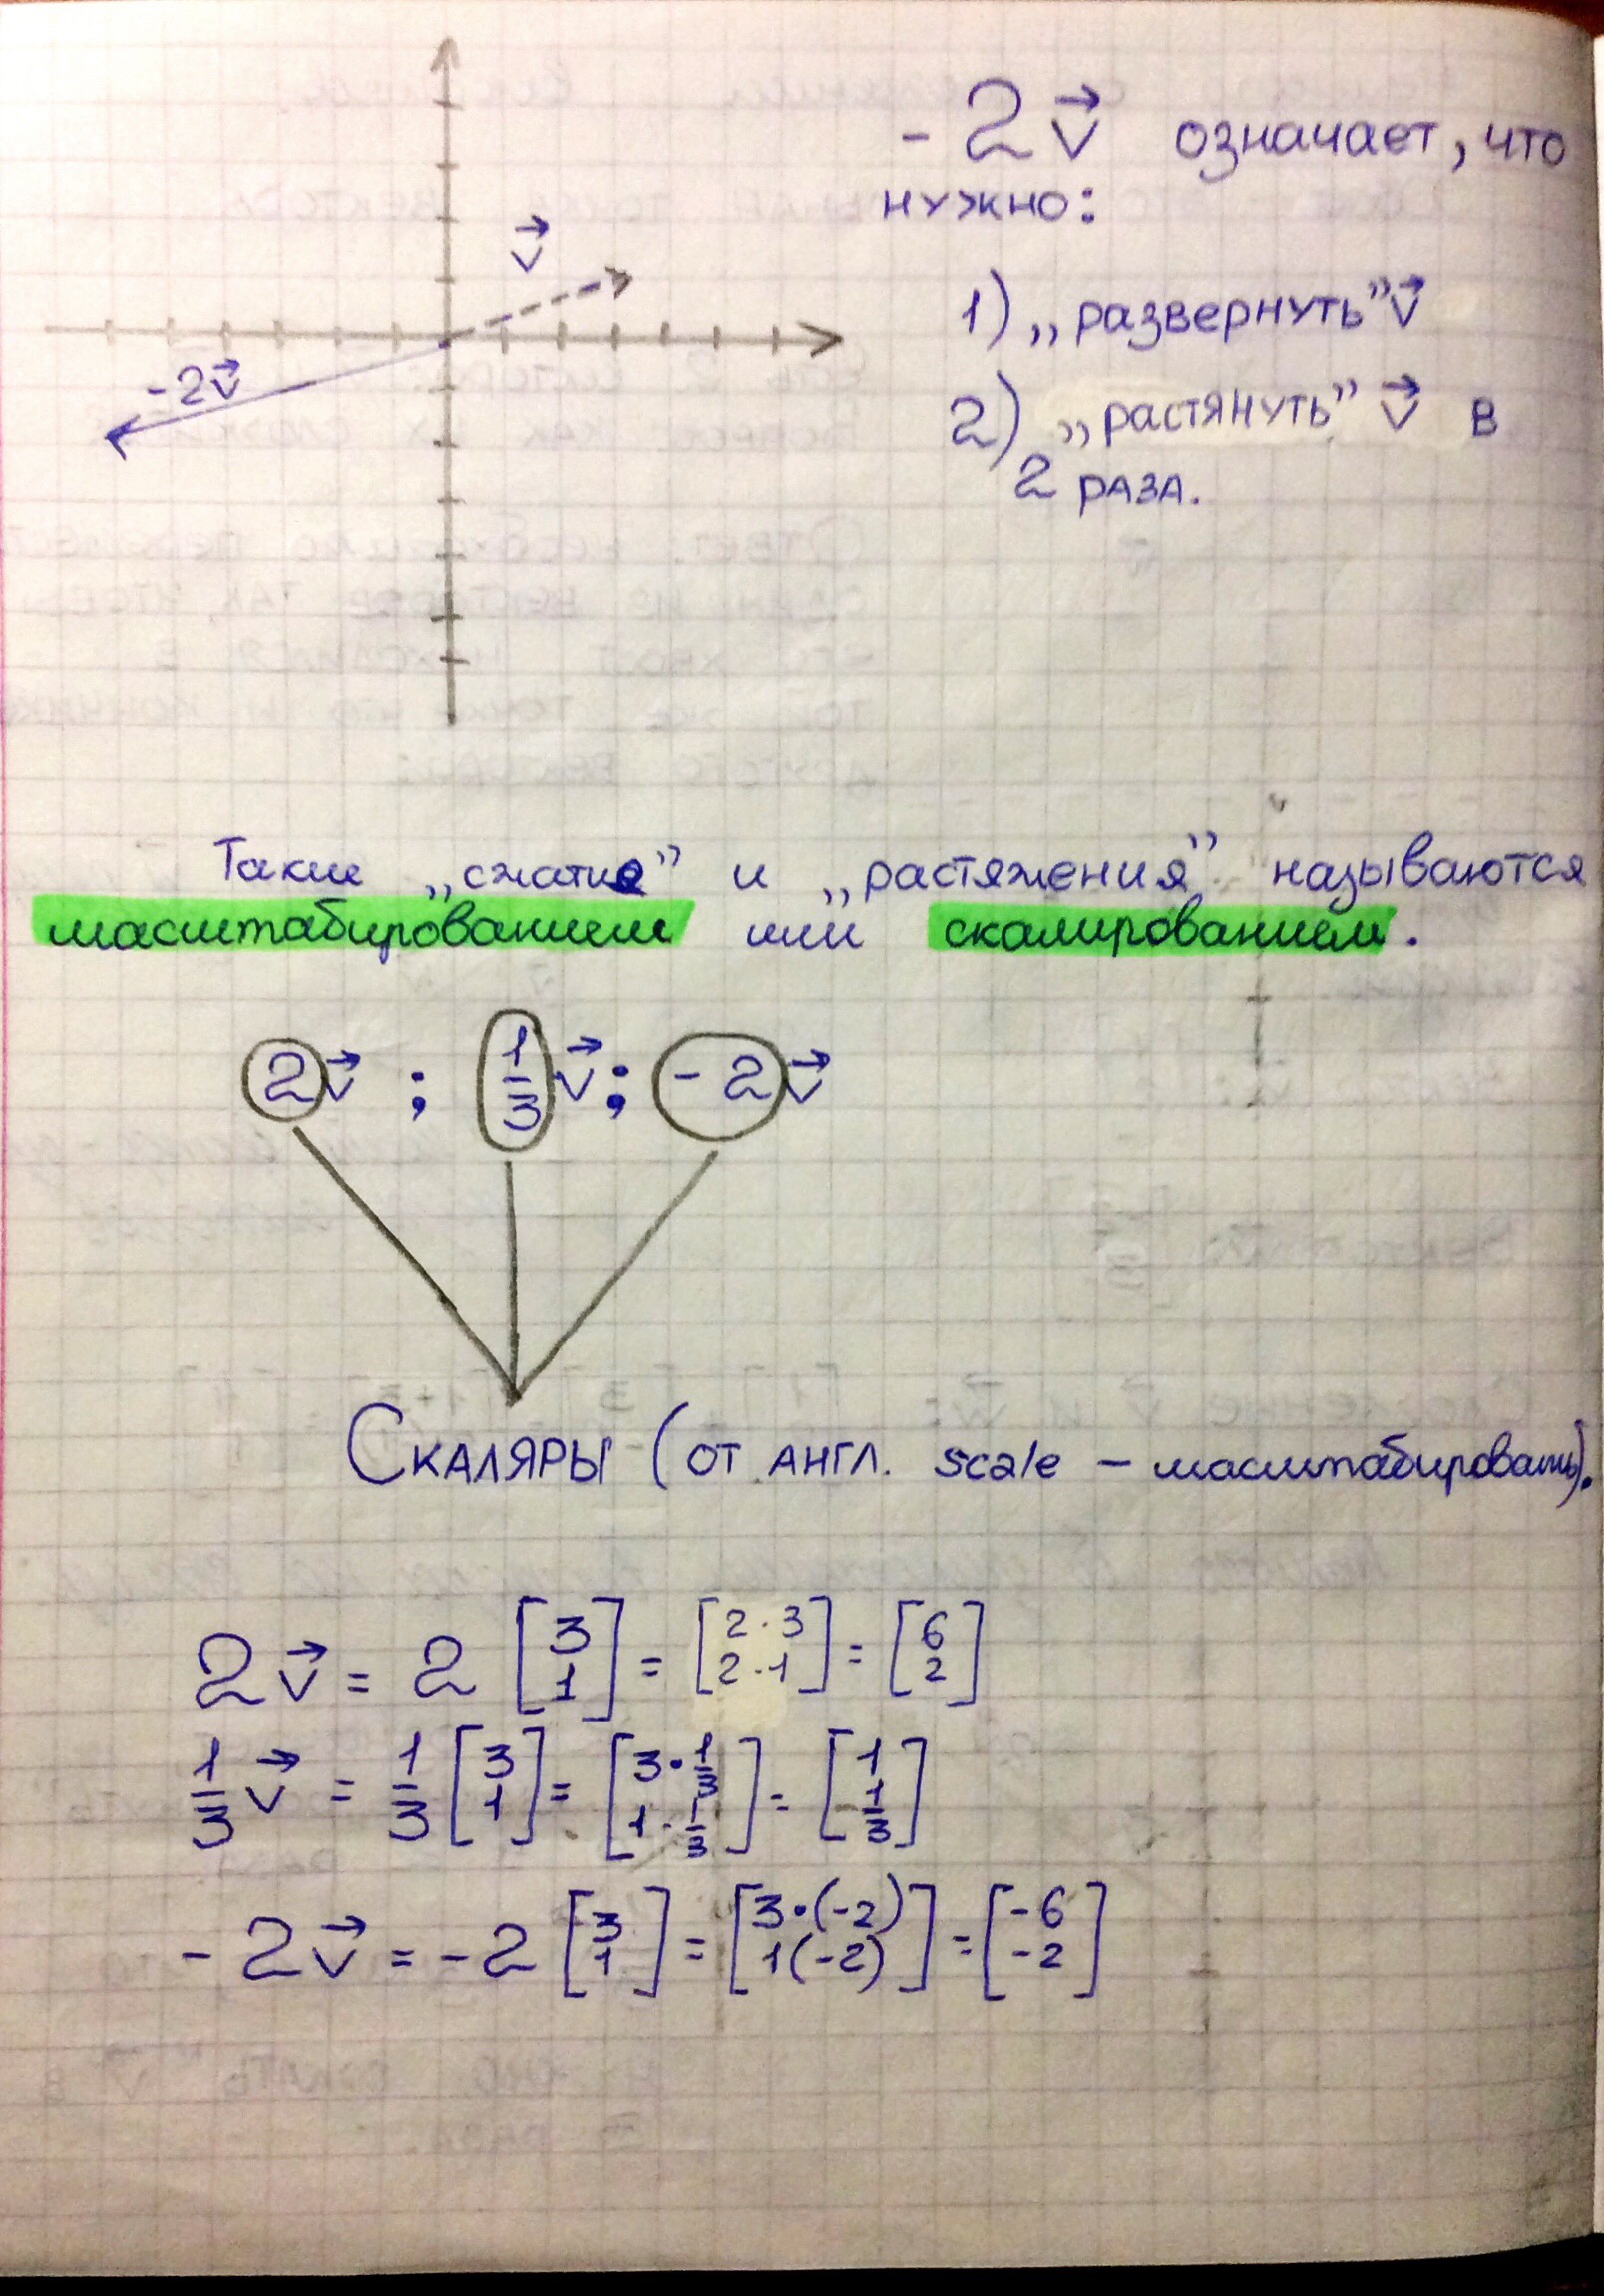 -2v⃗ означает, что
нужно:
v⃗
1) „развернуть” v⃗
-2v⃗
2) „растянуть” v⃗ в
2 раза.
Такие „сжатие” и „растяжения” называются
масштабированием или скалированием.
2v⃗ ; 1/3 v⃗ ; -2v⃗
Скаляры (от англ. scale – масштабировать).
2v⃗ = 2 [3 1] = [2·3 2·1] = [6 2]
1/3 v⃗ = 1/3 [3 1] = [3·1/3 1·1/3] = [1 1/3]
-2v⃗ = -2 [3 1] = [3·(-2) 1(-2)] = [-6 -2]